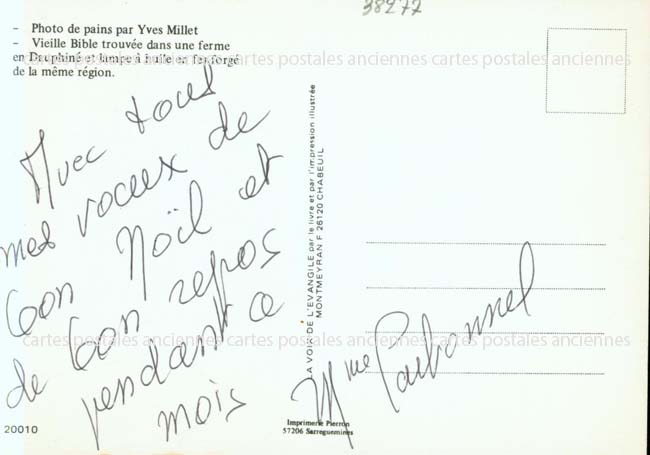 38277
- Photo de pains par Yves Millet
- Vieille Bible trouvée dans une ferme
en Dauphiné et lampe à huile en fer forgé
de la même région.
cartes postales anciennes cartes postales anciennes cartes postales anciennes
Avec tous
mes voeux de
bon Noël et
de bon repos
pendant ce
mois
LA VOIX DE L'EVANGILE par le livre et par l'impression illustrée
MONTMEYRAN F 26120 CHABEUIL
cartes postales anciennes cartes postales anciennes cartes postales anciennes
Mme Carbonnel
20010
Imprimerie Pierron
57206 Sarreguemines